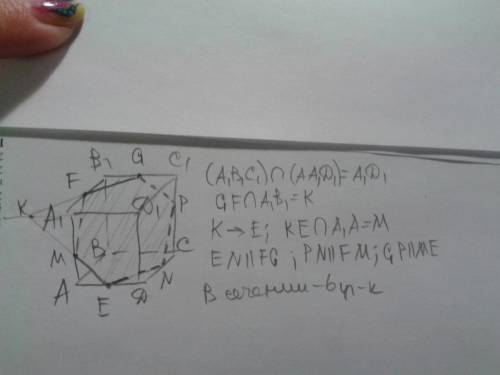 B₁ G C₁
F
K A₁ D₁ P
B C
M N
A E D
(A₁B₁C₁)∩(AA₁D₁)=A₁D₁
GF∩A₁B₁=K
K→E; KE∩A₁A=M
EN||FG; PN||FM; GP||ME
В сечении - 6уг-к